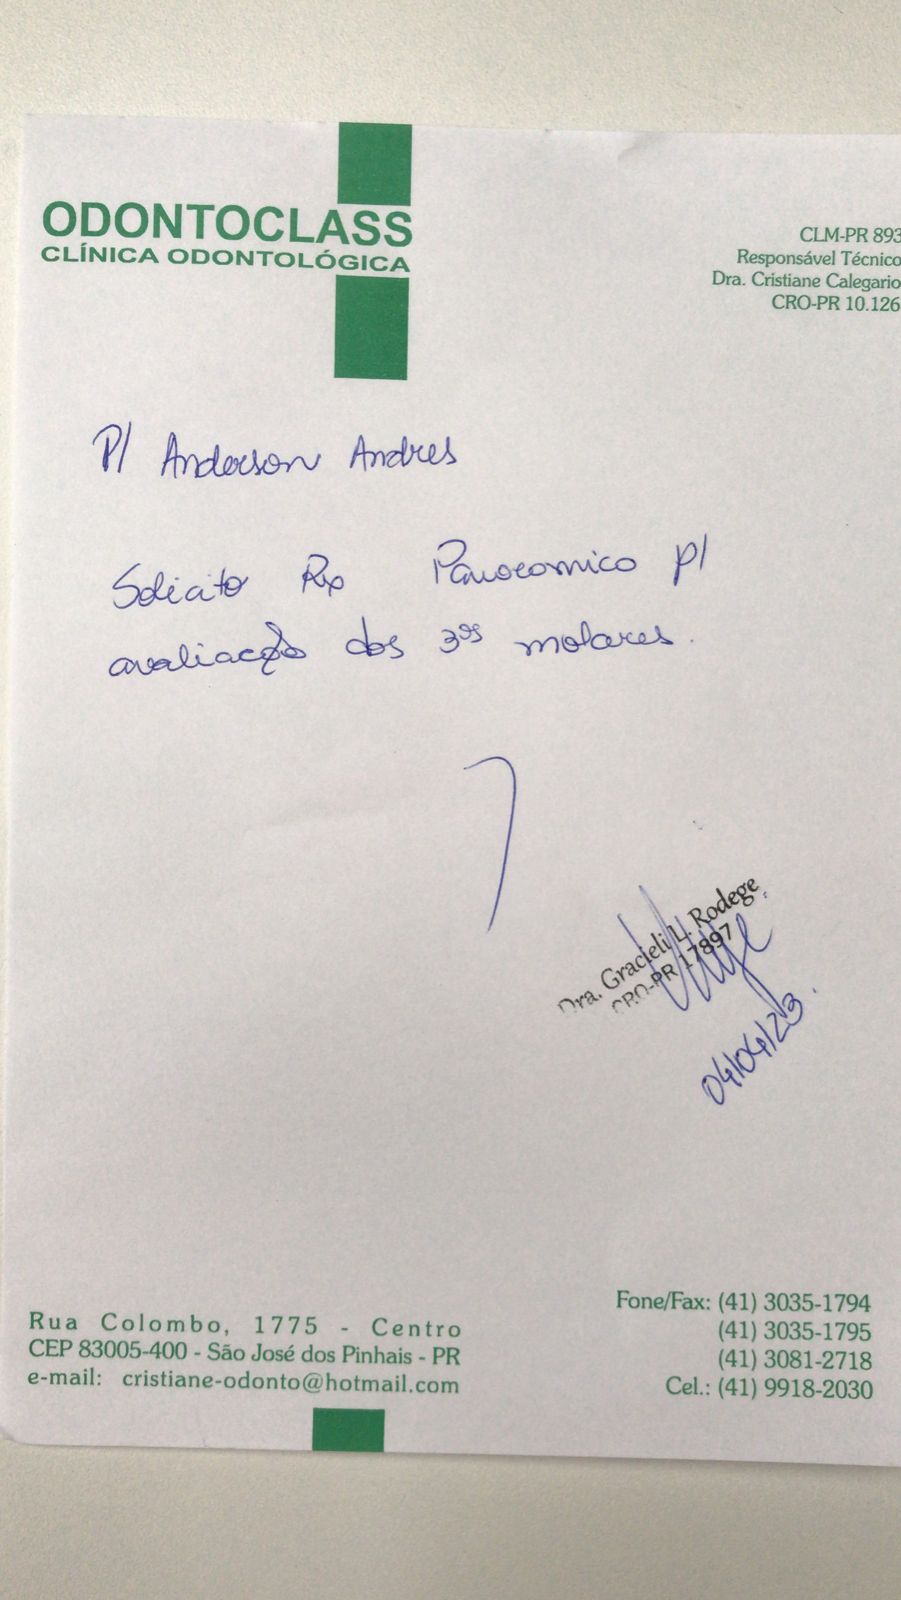 ODONTOCLASS
CLÍNICA ODONTOLÓGICA
CLM-PR 893
Responsável Técnico
Dra. Cristiane Calegario
CRO-PR 10.126
P/ Anderson Andres
Solicito Rx Panoramico p/
avaliação dos 3ºs molares.
Dra. Gracieli L. Rodege
CRO-PR 17897
04/04/23.
Rua Colombo, 1775 - Centro
CEP 83005-400 - São José dos Pinhais - PR
e-mail: cristiane-odonto@hotmail.com
Fone/Fax: (41) 3035-1794
(41) 3035-1795
(41) 3081-2718
Cel.: (41) 9918-2030